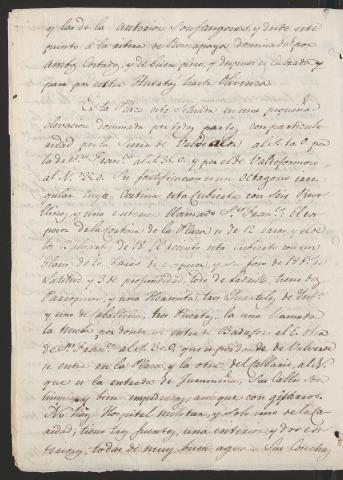 y las de la anterior son fangosas, y desde este
punto á la ribera de Romapaya dominado por
ambos Costados, y de buen piso, y despues es Quebrado y
pasa por entre Huertas hasta Olivenza
Es la Plaza está situada en una pequeña
elevacion dominada por todas partes, con particula
ridad por la Sierra de Valdealor al S. ¼ O. por
la de Sn. Franco. al S.S.O. y por el de Valdeformoso
al N. ¼ O. Su fortificacion es un Octagono irre
gular cuya Cortina está Cubierta con Seis Reve
llines, y uno exterior llamado Sn. Franco. El es
pesor de la Cortina de la Plaza es de 12 varas y el de
los Baluartes de 15. El recinto está Cubierto con un
Glasis de 20 varas de espesor, y su foso de 14 Ps. de
Latitud y 3 de profundidad, todo de Ladrillo, tiene dos
Parroquias, y una Hermita, tres Quarteles de Infa.
y uno de Caballeria, tres Puertas, la una llamada
la Nueva por donde se entra de Badajoz al E. otra
de Sn. Franco. al S.S.O. que es por donde de Valverde
se entra en la Plaza, y la otra del Calbario, al N.
que es la entrada de Jurumeña, Sus Calles son
limpias y bien empedradas, aunque con guijarros.
No hay Hospital militar, y solo uno de la Ca
ridad, tiene tres fuentes, una interior y dos ex
teriores, todas de muy buen agua. Su Cosecha